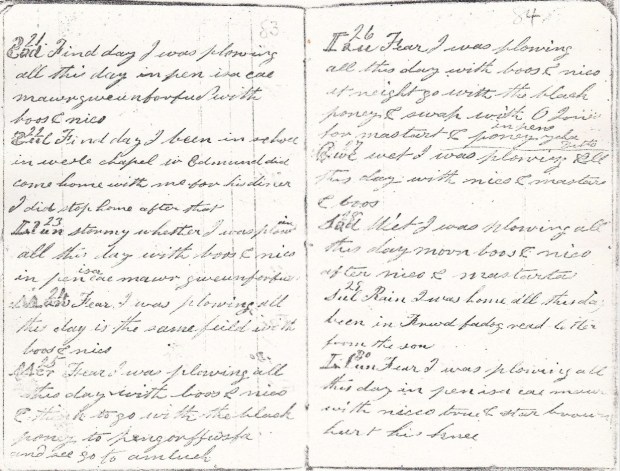 83
21
Sad Find day I was plowing
all this day in pen isa cae
mawr gwern for fus with
boos & nico
22
Sul Find day I been in school
in werle chapel iv Edmund did
come home with me for his diner
I did stop home after that
23
Lun stormy whether I was plowin
all this day with boos & nico
in pen isa cae mawr
24
Fear I was plowing all
this day is the same fuld with
boos & nico
25
Mer Fear I was plowing all
this day with boos & nico
& think to go with the black
poney to
and see go to amluch
84
26
Iau Fear I was plowing
all this day with boos & nico
at neight go with the black
poney & swap with O Jones
for mastart &
27
wet I was plowing all
this day with nico & mastart
& boos
28
Sad Wet I was plowing all
this day moon boos & nico
after nico & mastarte
29
Sul Rain I was home all this day
been in read letter
from the son
30
Lun Fear I was plowing all
this day in pen isa cae mawr
with nicco & star
hurt his knee